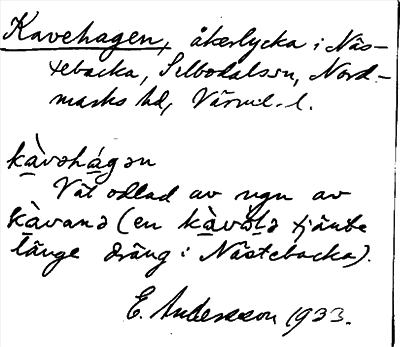 Kavehagen, åkerlycka i Näs-
tebacka, Silbodals sn, Nord-
marks hd, Värml. l.
kàvəhágən
Vat odlad av ngn av
kàvanə (en kàvələ tjänte
länge dräng i Nästebacka).
E. Andersson 1933.